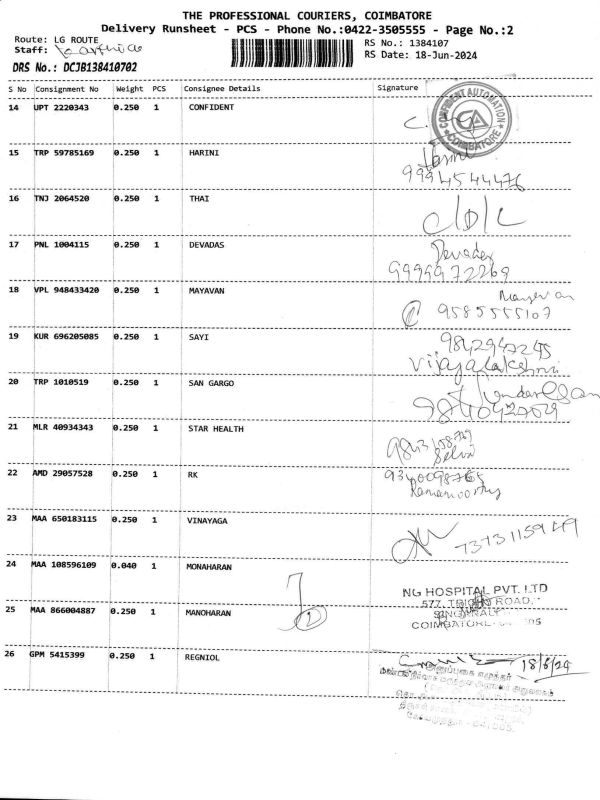 THE PROFESSIONAL COURIERS, COIMBATORE
Delivery Runsheet - PCS - Phone No.:0422-3505555 - Page No.:2
Route: LG ROUTE
RS No.: 1384107
Staff:
RS Date: 18-Jun-2024
DRS No.: DCJB138410702
S No Consignment No Weight PCS Consignee Details Signature
14 UPT 2220343 0.250 1 CONFIDENT
CONFIDENT AUTOMATION
CA
COIMBATORE
15 TRP 59785169 0.250 1 HARINI Harini
9994544476
16 TNJ 2064520 0.250 1 THAI
17 PNL 1004115 0.250 1 DEVADAS Devadas
9999972269
18 VPL 948433420 0.250 1 MAYAVAN
9585555107
19 KUR 696205085 0.250 1 SAYI 9842947245
Vijayalakshmi
20 TRP 1010519 0.250 1 SAN GARGO
21 MLR 40934343 0.250 1 STAR HEALTH
Selvi
22 AMD 29057528 0.250 1 RK
Ramamoorthy
23 MAA 650183115 0.250 1 VINAYAGA 7373115949
24 MAA 108596109 0.040 1 MONAHARAN
NG HOSPITAL PVT. LTD
577, TRICHY ROAD,
25 MAA 866004887 0.250 1 MANOHARAN SINGANALLUR
COIMBATORE
26 GPM 5415399 0.250 1 REGNIOL 18/6/24